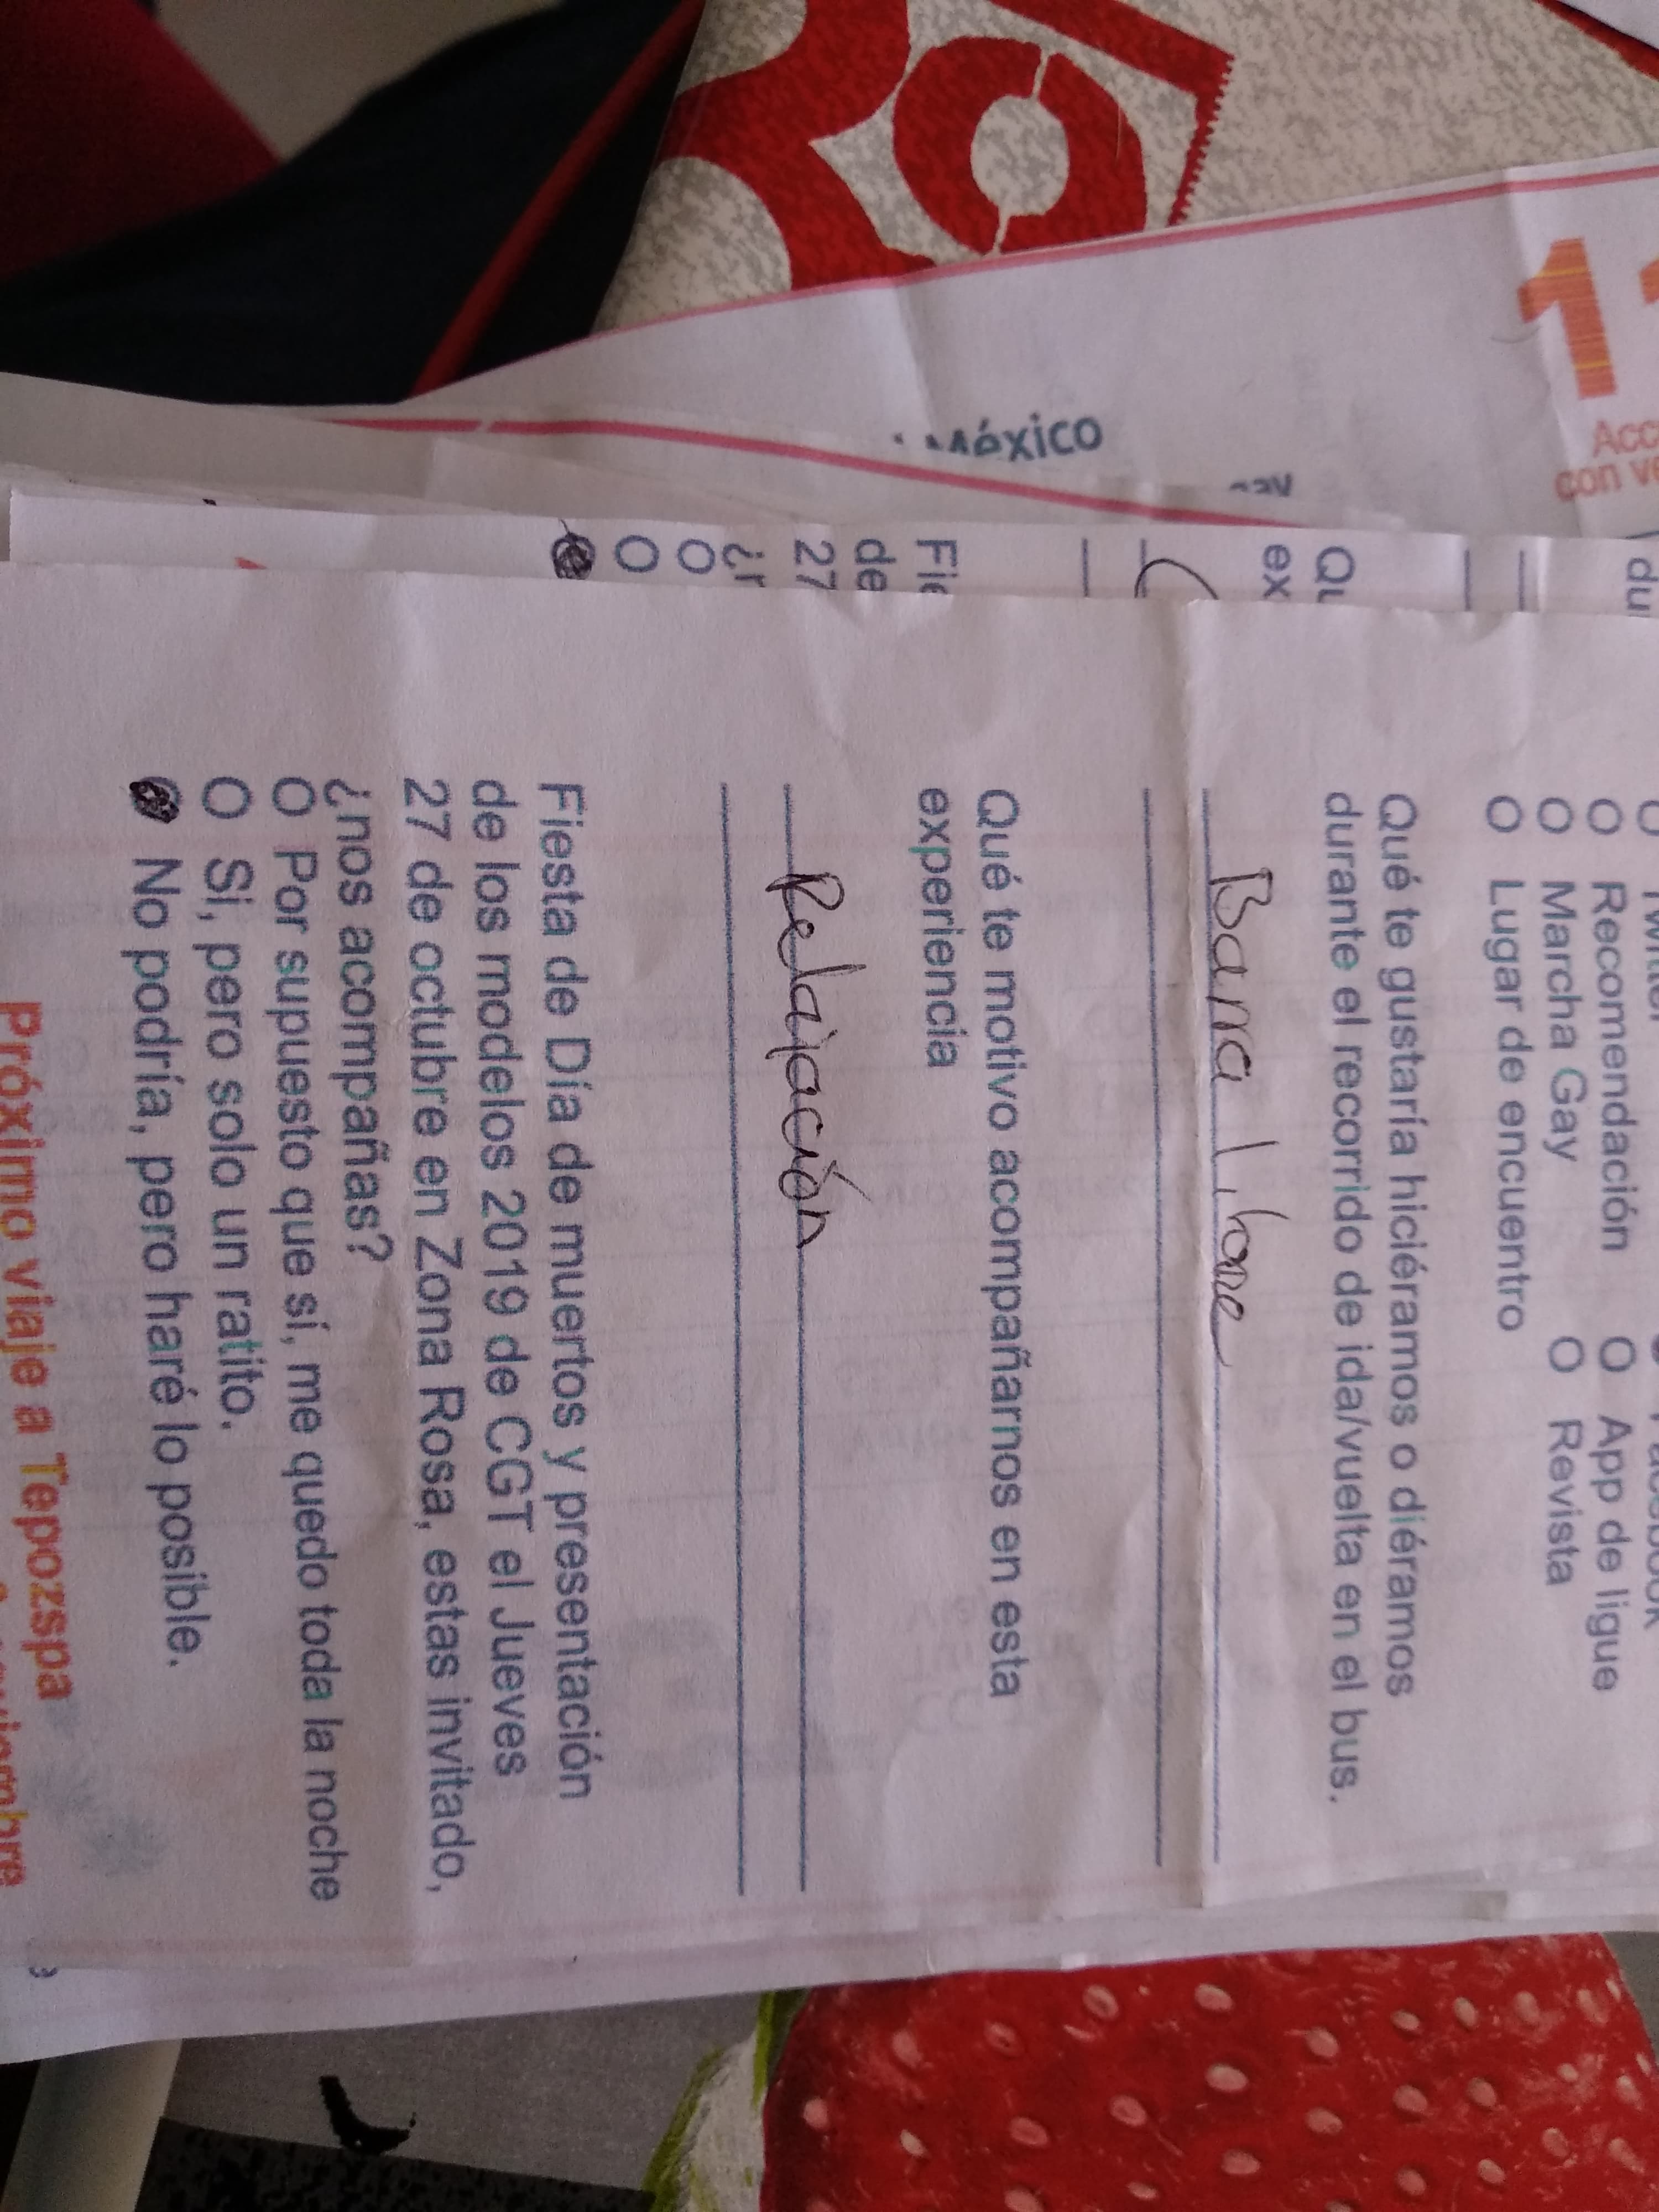 O Recomendación O App de ligue
O Marcha Gay O Revista
O Lugar de encuentro
Qué te gustaría hiciéramos o diéramos
durante el recorrido de ida/vuelta en el bus.
Barra libre
Qué te motivo acompañarnos en esta
experiencia
Relajación
Fiesta de Día de muertos y presentación
de los modelos 2019 de CGT el Jueves
27 de octubre en Zona Rosa, estas invitado,
¿nos acompañas?
O Por supuesto que sí, me quedo toda la noche
O Si, pero solo un ratito.
No podría, pero haré lo posible.
Próximo viaje a Tepozspa
México
Qu
ex
Fie
de
27
O
O
con